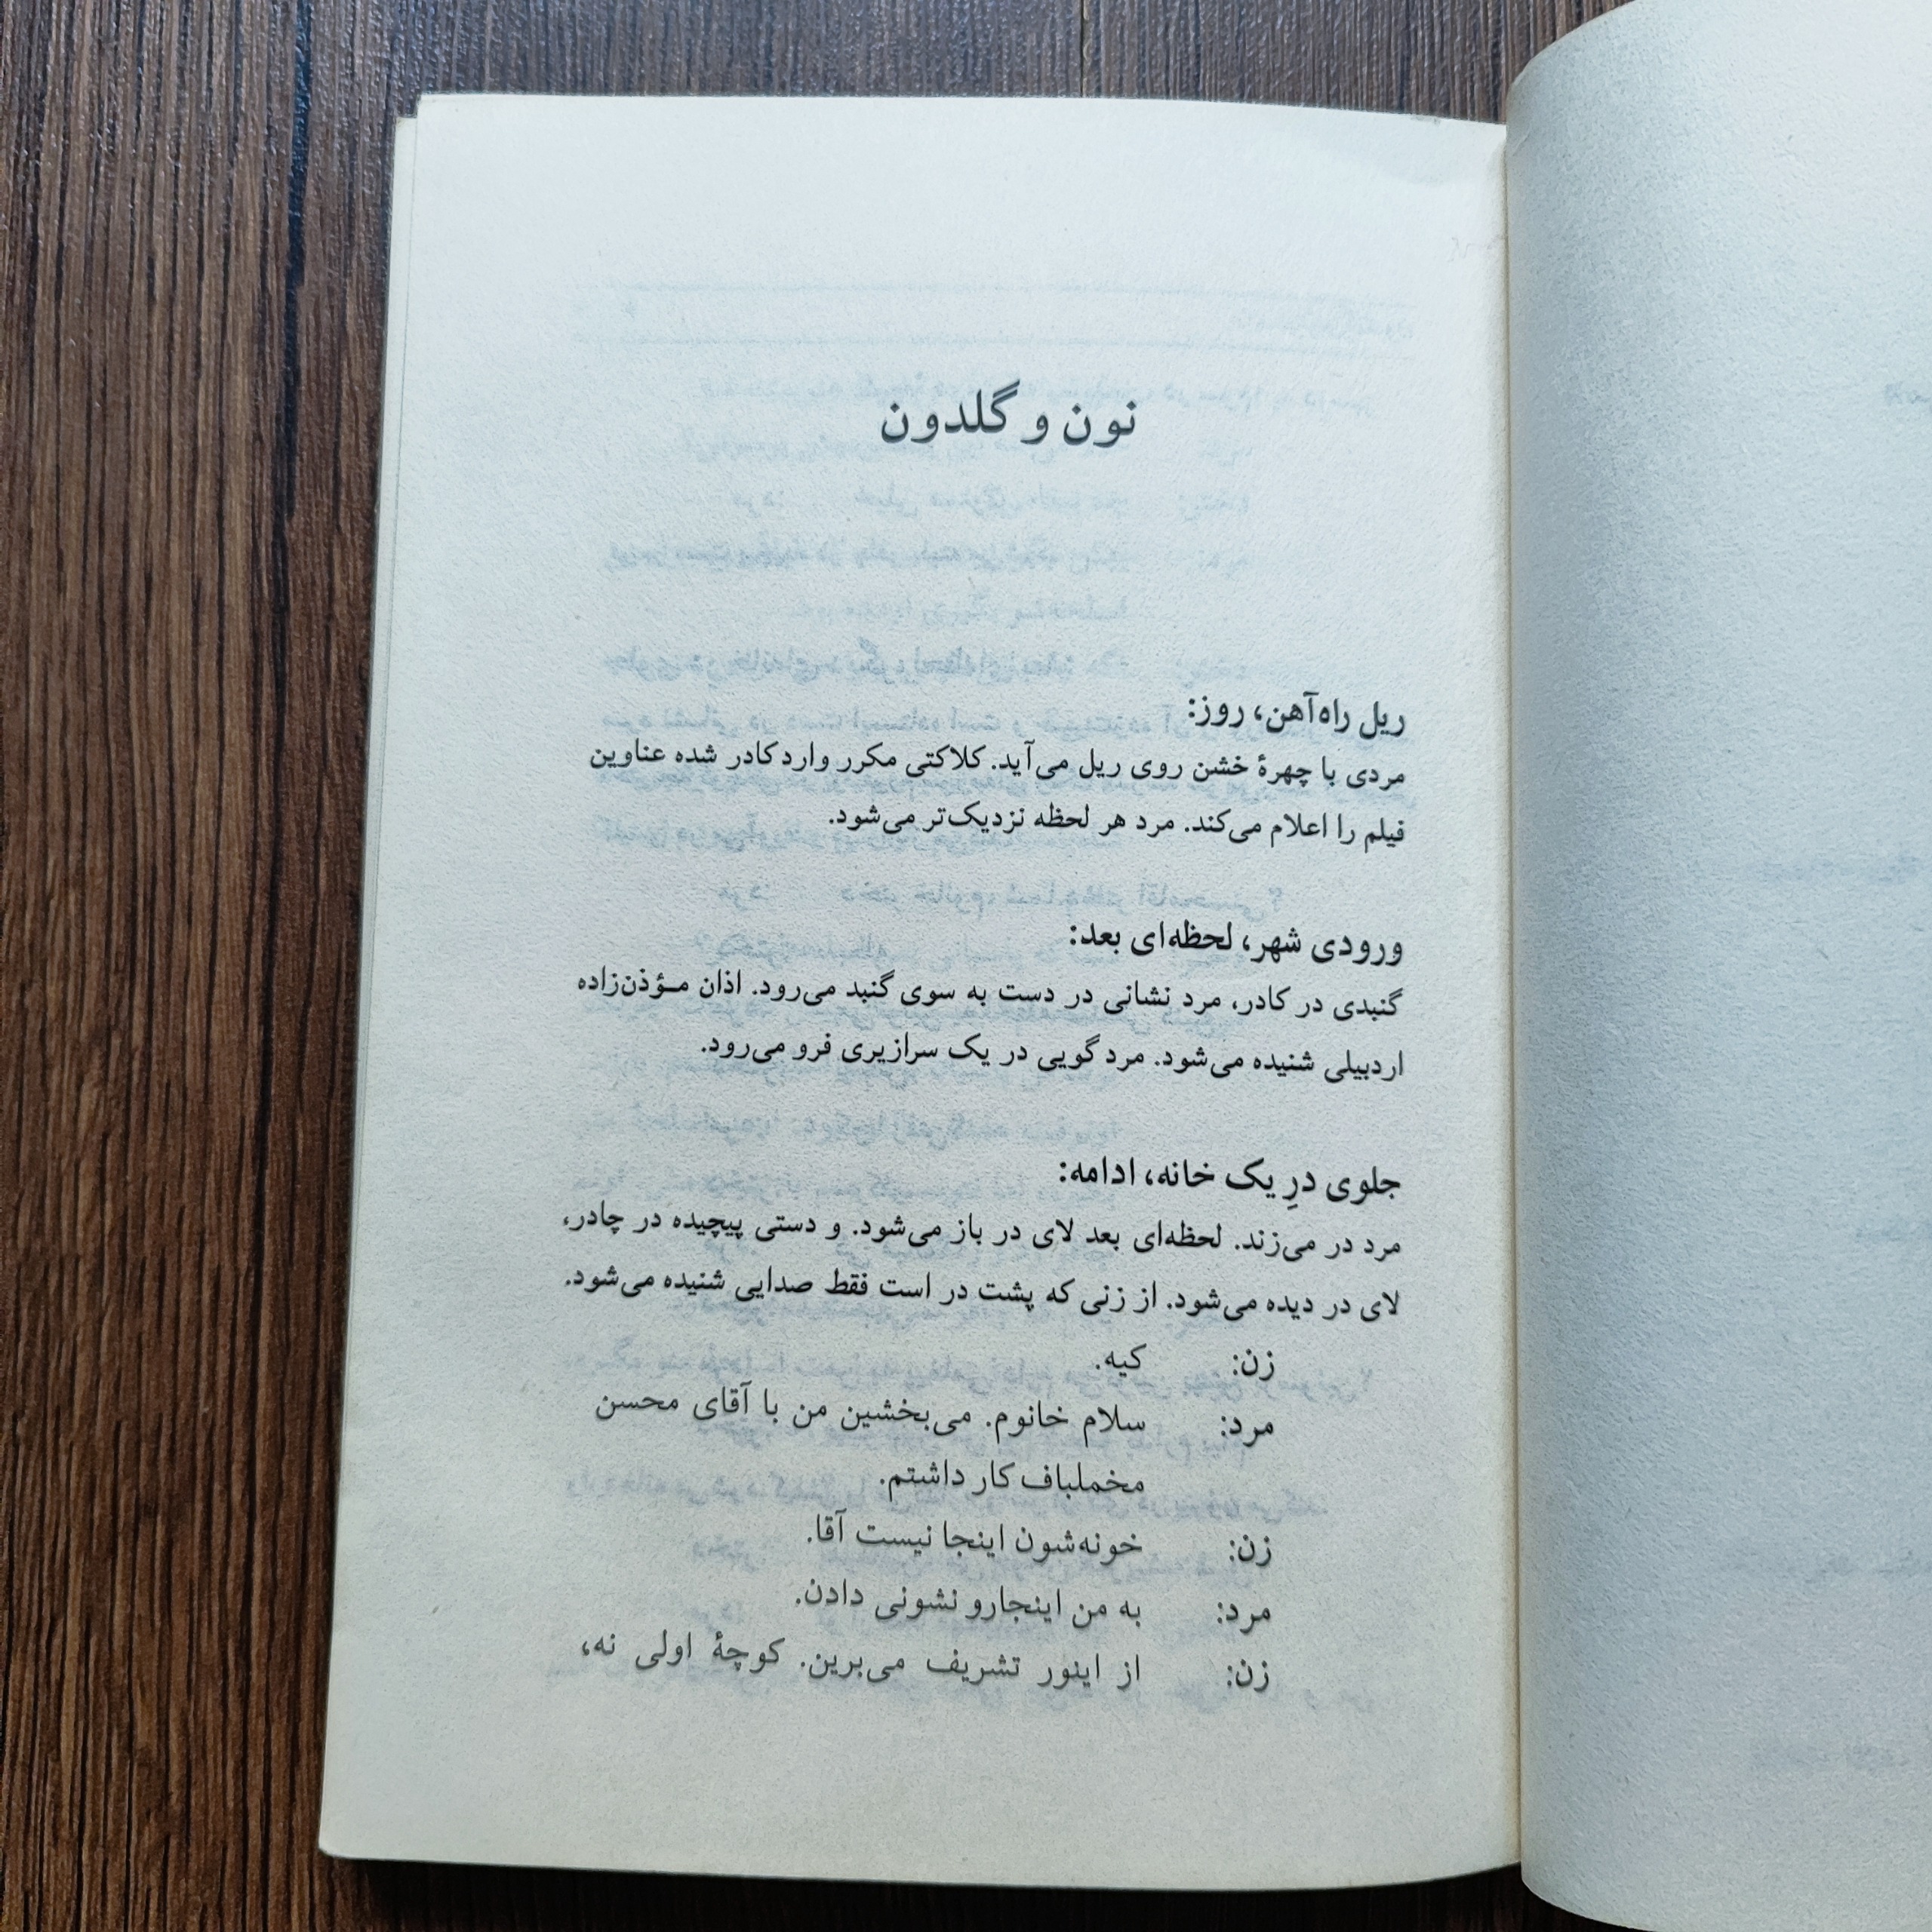 نون و گلدون
ریل راه‌آهن، روز:
مردی با چهرهٔ خشن روی ریل می‌آید. کلاکتی مکرر وارد کادر شده عناوین
فیلم را اعلام می‌کند. مرد هر لحظه نزدیک‌تر می‌شود.
ورودی شهر، لحظه‌ای بعد:
گنبدی در کادر، مرد نشانی در دست به سوی گنبد می‌رود. اذان مـؤذن‌زاده
اردبیلی شنیده می‌شود. مرد گویی در یک سرازیری فرو می‌رود.
جلوی درِ یک خانه، ادامه:
مرد در می‌زند. لحظه‌ای بعد لای در باز می‌شود. و دستی پیچیده در چادر،
لای در دیده می‌شود. از زنی که پشت در است فقط صدایی شنیده می‌شود.
زن: کیه.
مرد: سلام خانوم. می‌بخشین من با آقای محسن
مخملباف کار داشتم.
زن: خونه‌شون اینجا نیست آقا.
مرد: به من اینجارو نشونی دادن.
زن: از اینور تشریف می‌برین. کوچهٔ اولی نه،